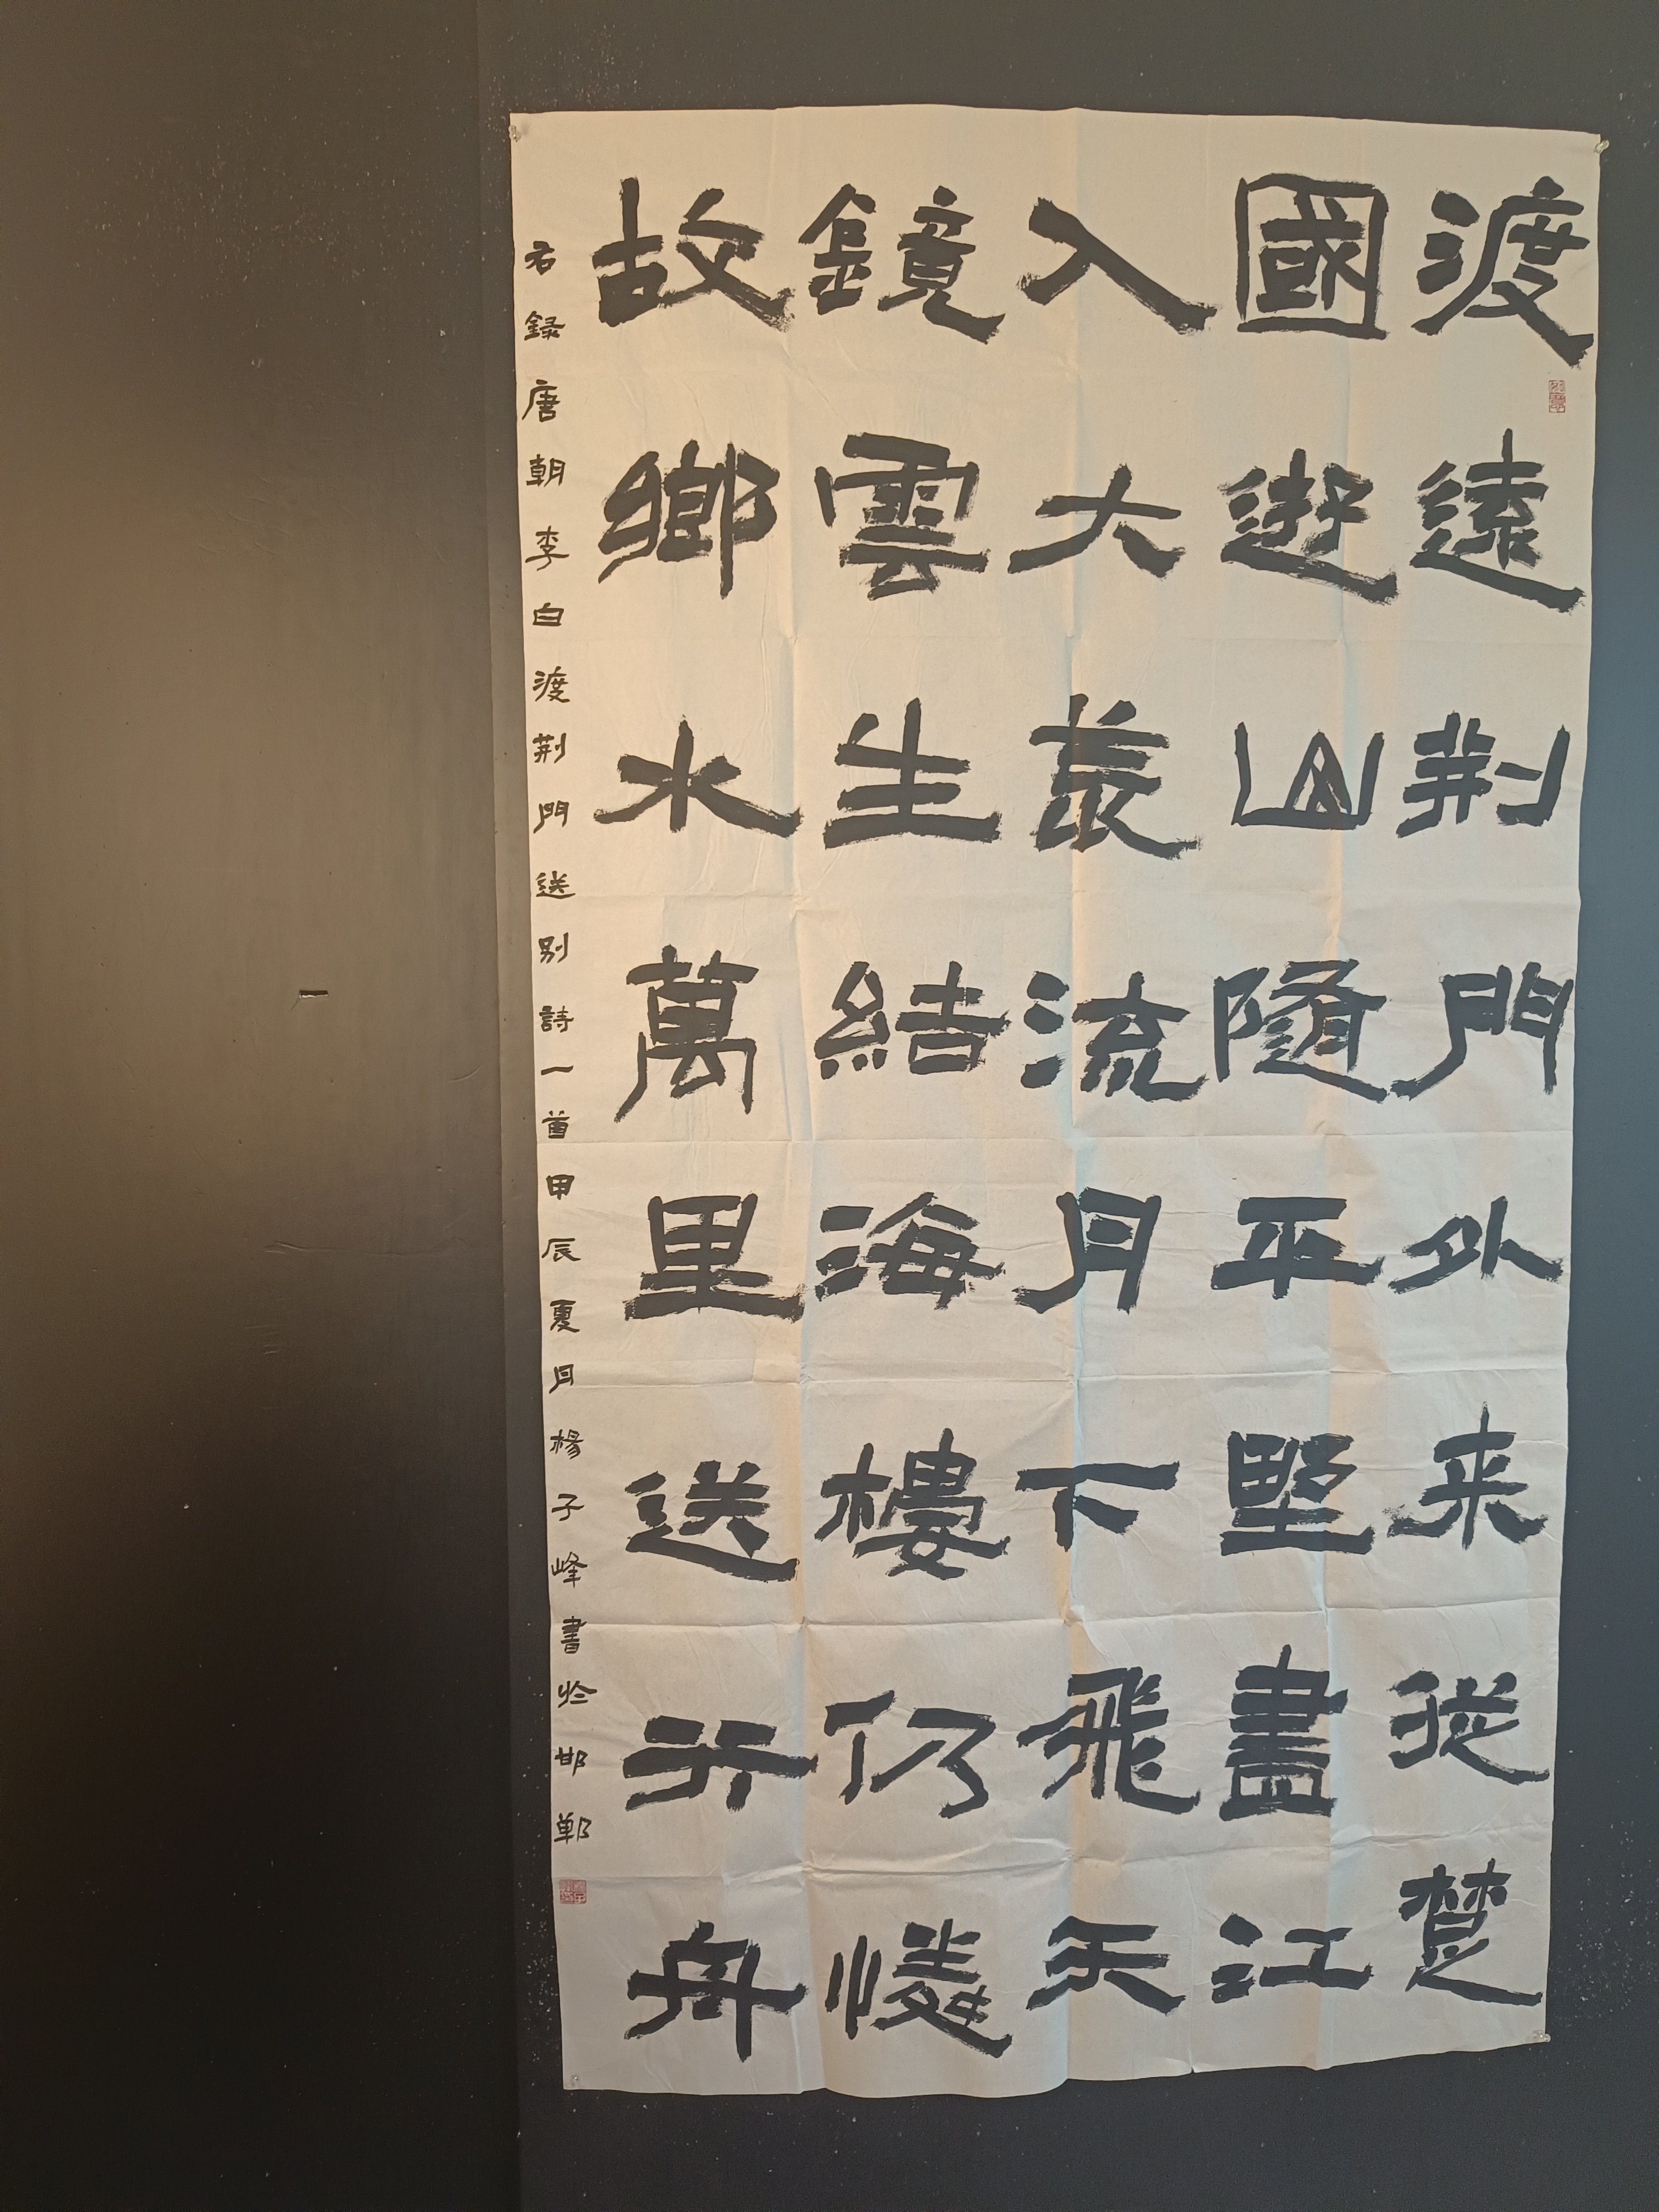 渡遠荆門外来從楚
國遊山隨平野盡江
入大荒流月下飛天
鏡雲生結海樓仍憐
故鄉水萬里送行舟
右録唐朝李白渡荆門送别詩一首甲辰夏月楊子峰書於邯鄲